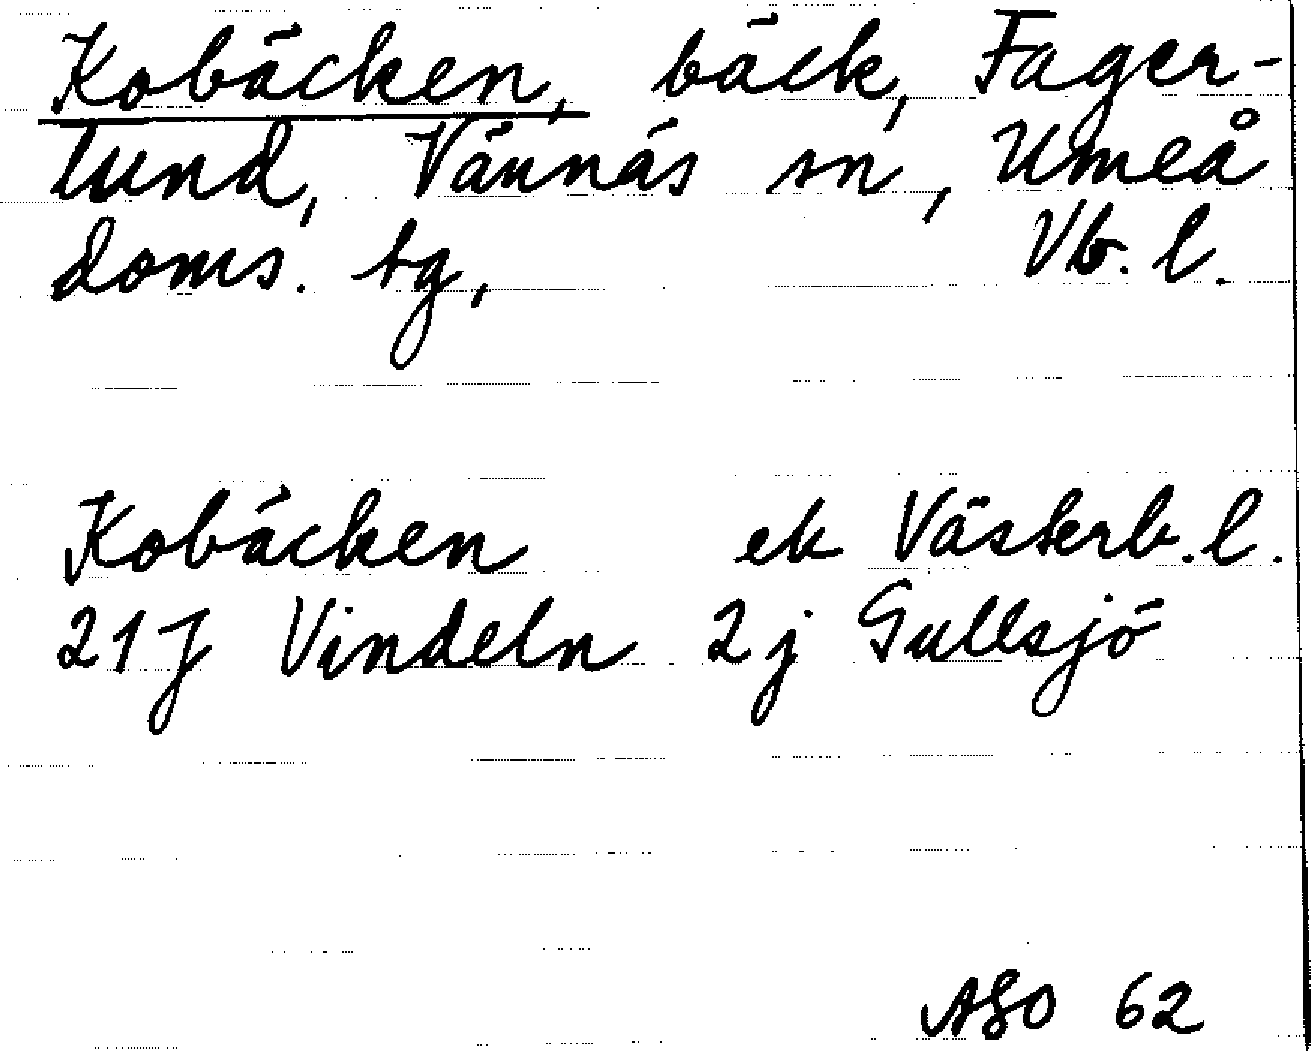 Kobäcken, bäck, Fager-
lund, Vännäs sn, Umeå
doms. tg, Vb. l.
Kobäcken ek Västerb. l.
21J Vindeln 2j Gullsjö
ASO 62